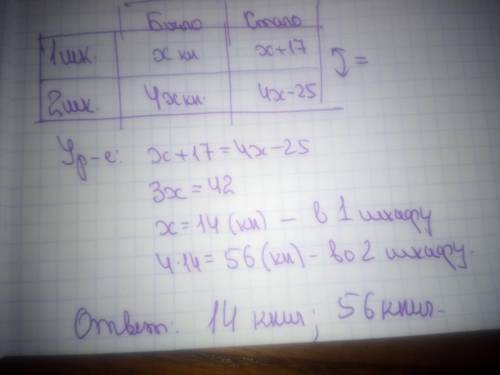 Было Стало
1 шк. x кн x+17
2 шк. 4x кн. 4x-25 =
Ур-е: x+17=4x-25
3x=42
x=14 (кн) - в 1 шкафу
4·14=56 (кн) - во 2 шкафу.
Ответ: 14 книг; 56 книг.